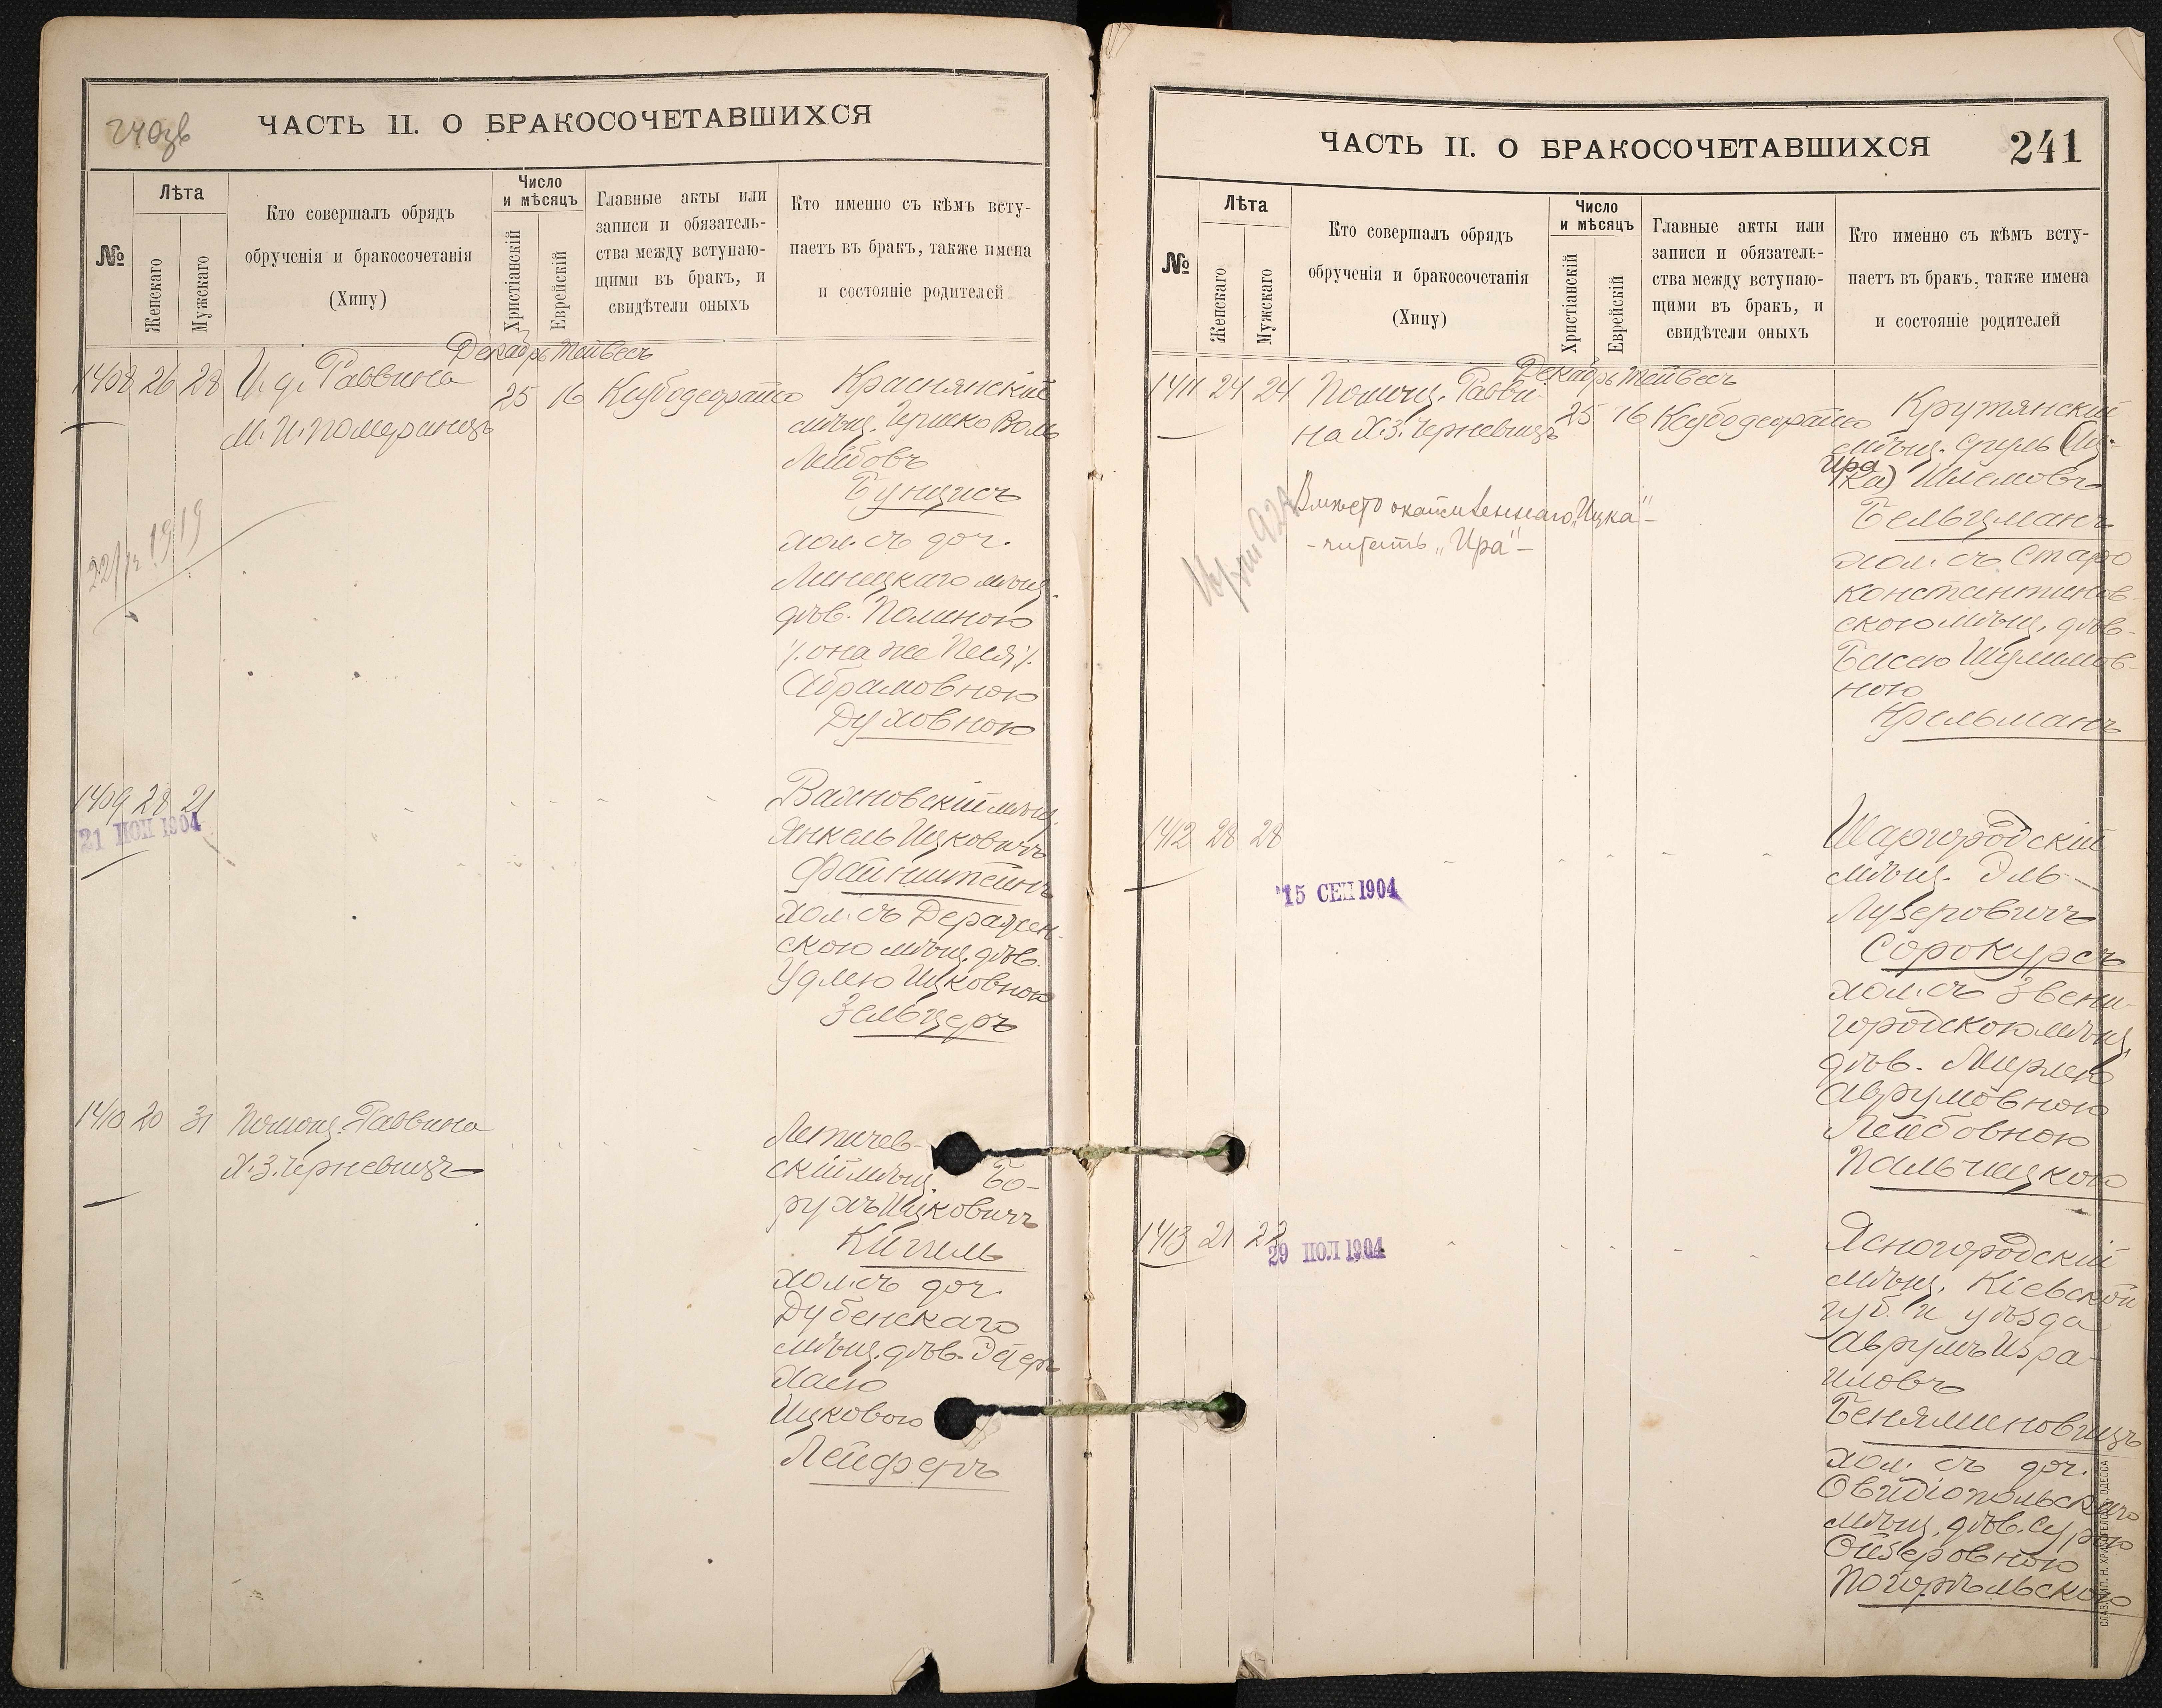 240об
ЧАСТЬ II. О БРАКОСОЧЕТАВШИХСЯ
№
Лѣта
Женскаго
Мужскаго
Кто совершалъ обрядъ
обрученія и бракосочетанія
(Хипу)
Число
и мѣсяцъ
Христіанскій
Еврейскій
Главные акты или
записи и обязатель-
ства между вступаю-
щими въ бракъ, и
свидѣтели оныхъ
Кто именно съ кѣмъ всту-
паетъ въ бракъ, также имена
и состояніе родителей
Декабрь Тейвесъ
1408 26 28 И. д. Раввина
М. И. Померанцъ
25 16 Ксубодеорайсо
Краснянскій
мѣщ. Гершко Воль
Лейбовъ
Бунцисъ
хол. съ доч.
Линецкаго мѣщ.
дѣв. Полиною
/. она же Песя ./
Абрамовною
Духовною
1919
1409 28 21
21 ИЮН 1904
Вахновскій мѣщ.
Янкель Ицковичъ
Файнштейнъ
хол. съ Деражен-
скою мѣщ. дѣв.
Удлею Ицковною
Зельцеръ
1410 20 31 Помощ. Раввина
Х. З. Черневицъ
Летичев-
скій мѣщ. Бо-
рухъ Ицковичъ
Кигель
хол. съ доч.
Дубенскаго
мѣщ. дѣв. Эстеръ
Хаею
Ицковою
Лейферъ
ЧАСТЬ II. О БРАКОСОЧЕТАВШИХСЯ
241
№
Лѣта
Женскаго
Мужскаго
Кто совершалъ обрядъ
обрученія и бракосочетанія
(Хипу)
Число
и мѣсяцъ
Христіанскій
Еврейскій
Главные акты или
записи и обязатель-
ства между вступаю-
щими въ бракъ, и
свидѣтели оныхъ
Кто именно съ кѣмъ всту-
паетъ въ бракъ, также имена
и состояніе родителей
Декабрь Тейвесъ
1411 24 24 Помощ. Равви-
на Х. З. Черневицъ
25 16 Ксубодеорайсо
Вмѣсто окаймленнаго „Ицка"-
- читать „Ира" -
Крутянскій
мѣщ. Сруль (Иц-
Ира
ка) Шлемовъ
Бельцманъ
хол. съ Старо
константинов-
скою мѣщ. дѣв.
Басею Шулимов-
ною
Крельманъ
1412 28 28
15 СЕН 1904
Шаргородскій
мѣщ. Эль-
Лузеровичъ
Сорокуръ
хол. съ Звени-
городскою мѣщ.
дѣв. Мирлею
Аврумовною
Лейбовною
Пальчицкою
1413 21 22
29 ИЮЛ 1904
Ясногородскій
мѣщ. Кіевской
губ. и уѣзда
Аврумъ Изра-
иловъ
Беняминовицъ
хол. съ доч.
Овидіопольскаго
мѣщ. дѣв. Сурою
Ойзеровною
Погорѣльскою